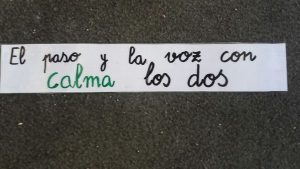 El paso y la voz con
calma los dos